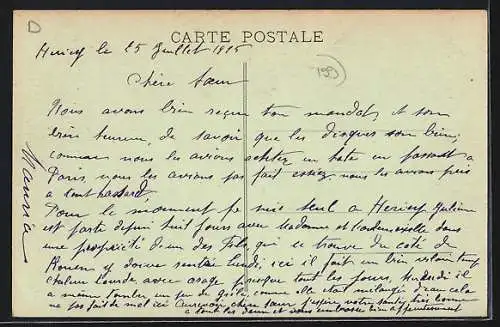 D
CARTE POSTALE
Hericy le 25 Juillet 1915
199
Chère Sœur
Nous avons bien reçu ton mandat, et som
bien heureu, de savoir que les disques son bien,
comme nous les avions acheter en hate en passant a
Paris, nous les avions pas fait essayez, nous les avons pris
a tout hassard,
Pour le moment je suis seul a Hericy Julien
est partie depuis huit jours avec Madame et Mademoiselle dans
une propriété d'un des fils, qui se trouve du coté de
Rouen, y doivent rentré lundi, ici il fait un bien vilain temp
chaleur lourde avec orage presque tout les jours, Mardi il
a même tomber un peu de grêle, comme elle était mélangé d'eau cela
ne pas fait de mal ici
a tout les deux et vous embrasse bien affectueusement
Maurice